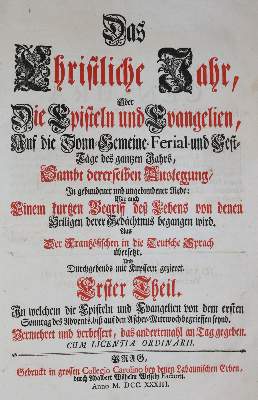 Das
Christliche Jahr,
Oder
Die Episteln und Evangelien,
Auf die Sonn- Gemeine- Ferial- und Fest-
Täge des gantzen Jahrs,
Sambt dererselben Auslegung/
In gebundener und ungebundener Rede:
Wie auch
Einem kurtzen Begriff deß Lebens von denen
Heiligen derer Gedächtnus begangen wird.
Aus
Der Frantzösischen in die Teutsche Sprach
übersetzt.
Und
Durchgehends mit Kupffern gezieret.
Erster Theil.
In welchem die Episteln und Evangelien von dem ersten
Sonntag des Advents, biß auf den Aschen-Mittwoch begriffen seynd.
Vermehret und verbessert, das andertemahl an Tag gegeben.
CUM LICENTIA ORDINARII.
PRAG,
Gedruckt in grossen Collegio Carolino bey denen Labaunischen Erben,
durch Adalbert Wilhelm Wessely Factorn.
Anno M. DCC. XXXIII.